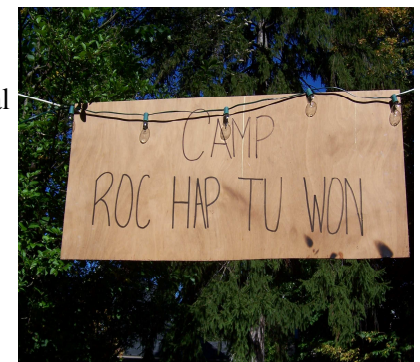 al
CAMP
ROC HAP TU WON